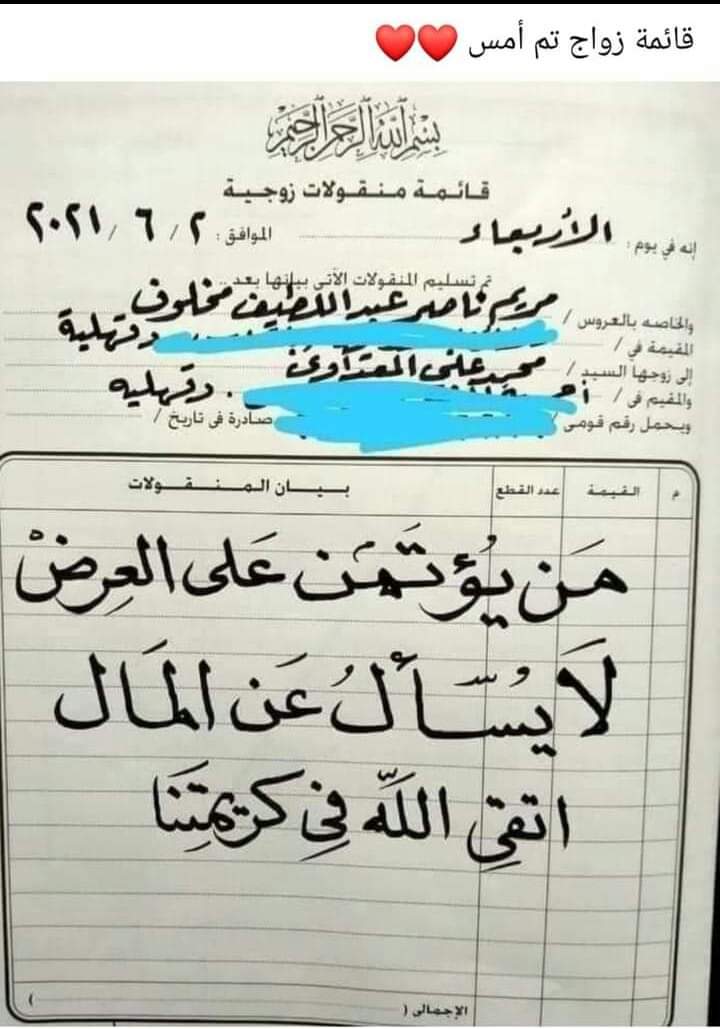 قائمة زواج تم أمس ❤️❤️
بسم الله الرحمن الرحيم
قائمة منقولات زوجية
إنه في يوم : الأربعاء الموافق : ٢ / ٦ / ٢٠٢١
تم تسليم المنقولات الآتى بيانها بعد
والخاصه بالعروس / مريم ناصر عبد اللطيف مخلوف
المقيمة في / دقهلية
إلى زوجها السيد / محمد على المعداوى
والمقيم فى / دقهليه
ويحمل رقم قومى / صادرة فى تاريخ /
م القيمة عدد القطع بيان المنقولات
مَن يُؤتَمَن عَلى العِرضْ
لَا يُسَأَلُ عَن المَال
اتقِي اللَّه فِي كَريمتِنَا
الإجمالى ( )